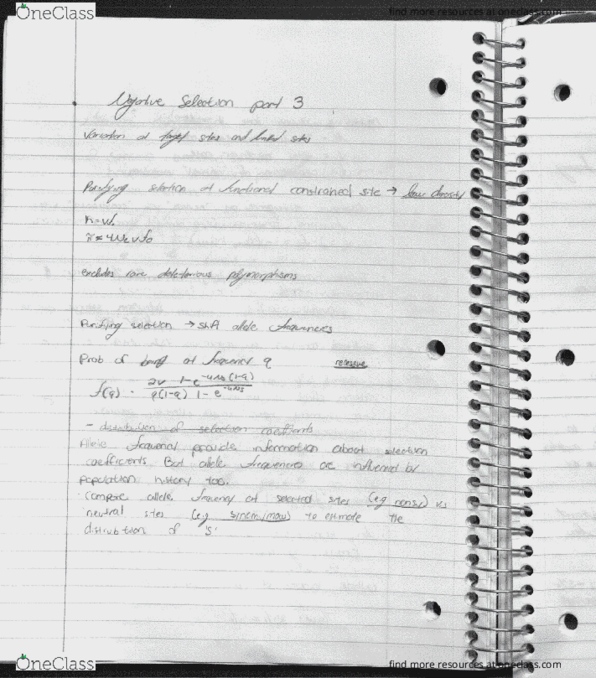 OneClass
find more resources at oneclass.com
Negative Selection part 3
Variation at target sites and linked sites
Purifying selection at functional constrained site → low diversity
π = 4Ne v fo
excludes rare deleterious polymorphisms
Purifying selection → shift allele frequencies
Prob of being at frequency q
f(q) = 2v / q(1-q) 1-e^-4Ns(1-q) / 1-e^-4Ns
- distribution of selection coefficients
Allele frequencies provide information about selection
coefficients. But allele frequencies are influenced by
population history too.
compare allele frequency at selected sites (eg nonsy) vs
neutral sites (eg ) to estimate the
distribution of 'S'
OneClass
find more resources at oneclass.com